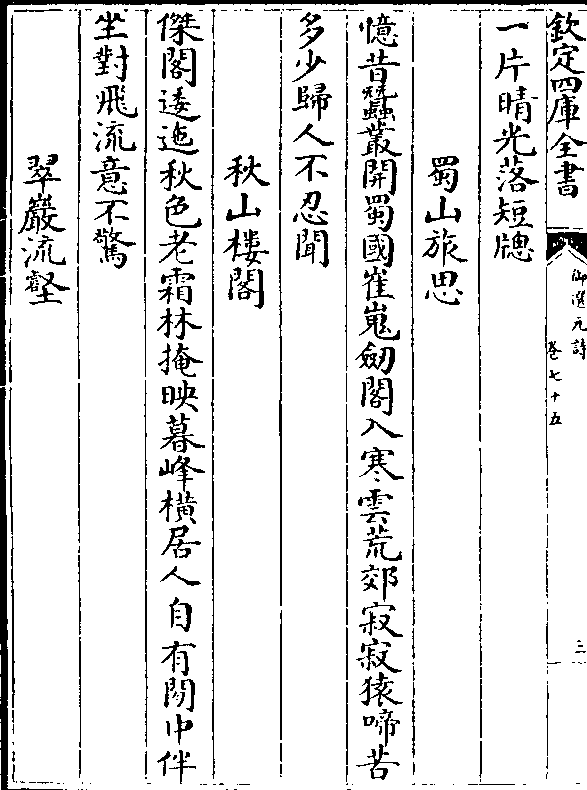 欽定四庫全書
御選元詩
卷七十五
三
一片晴光落短牕
蜀山旅思
憶昔蠶叢開蜀國崔嵬劒閣入寒雲荒郊寂寂猿啼苦
多少歸人不忍聞
秋山樓閣
傑閣逶迤秋色老霜林掩映暮峰橫居人自有閒中伴
坐對飛流意不驚
翠巖流壑